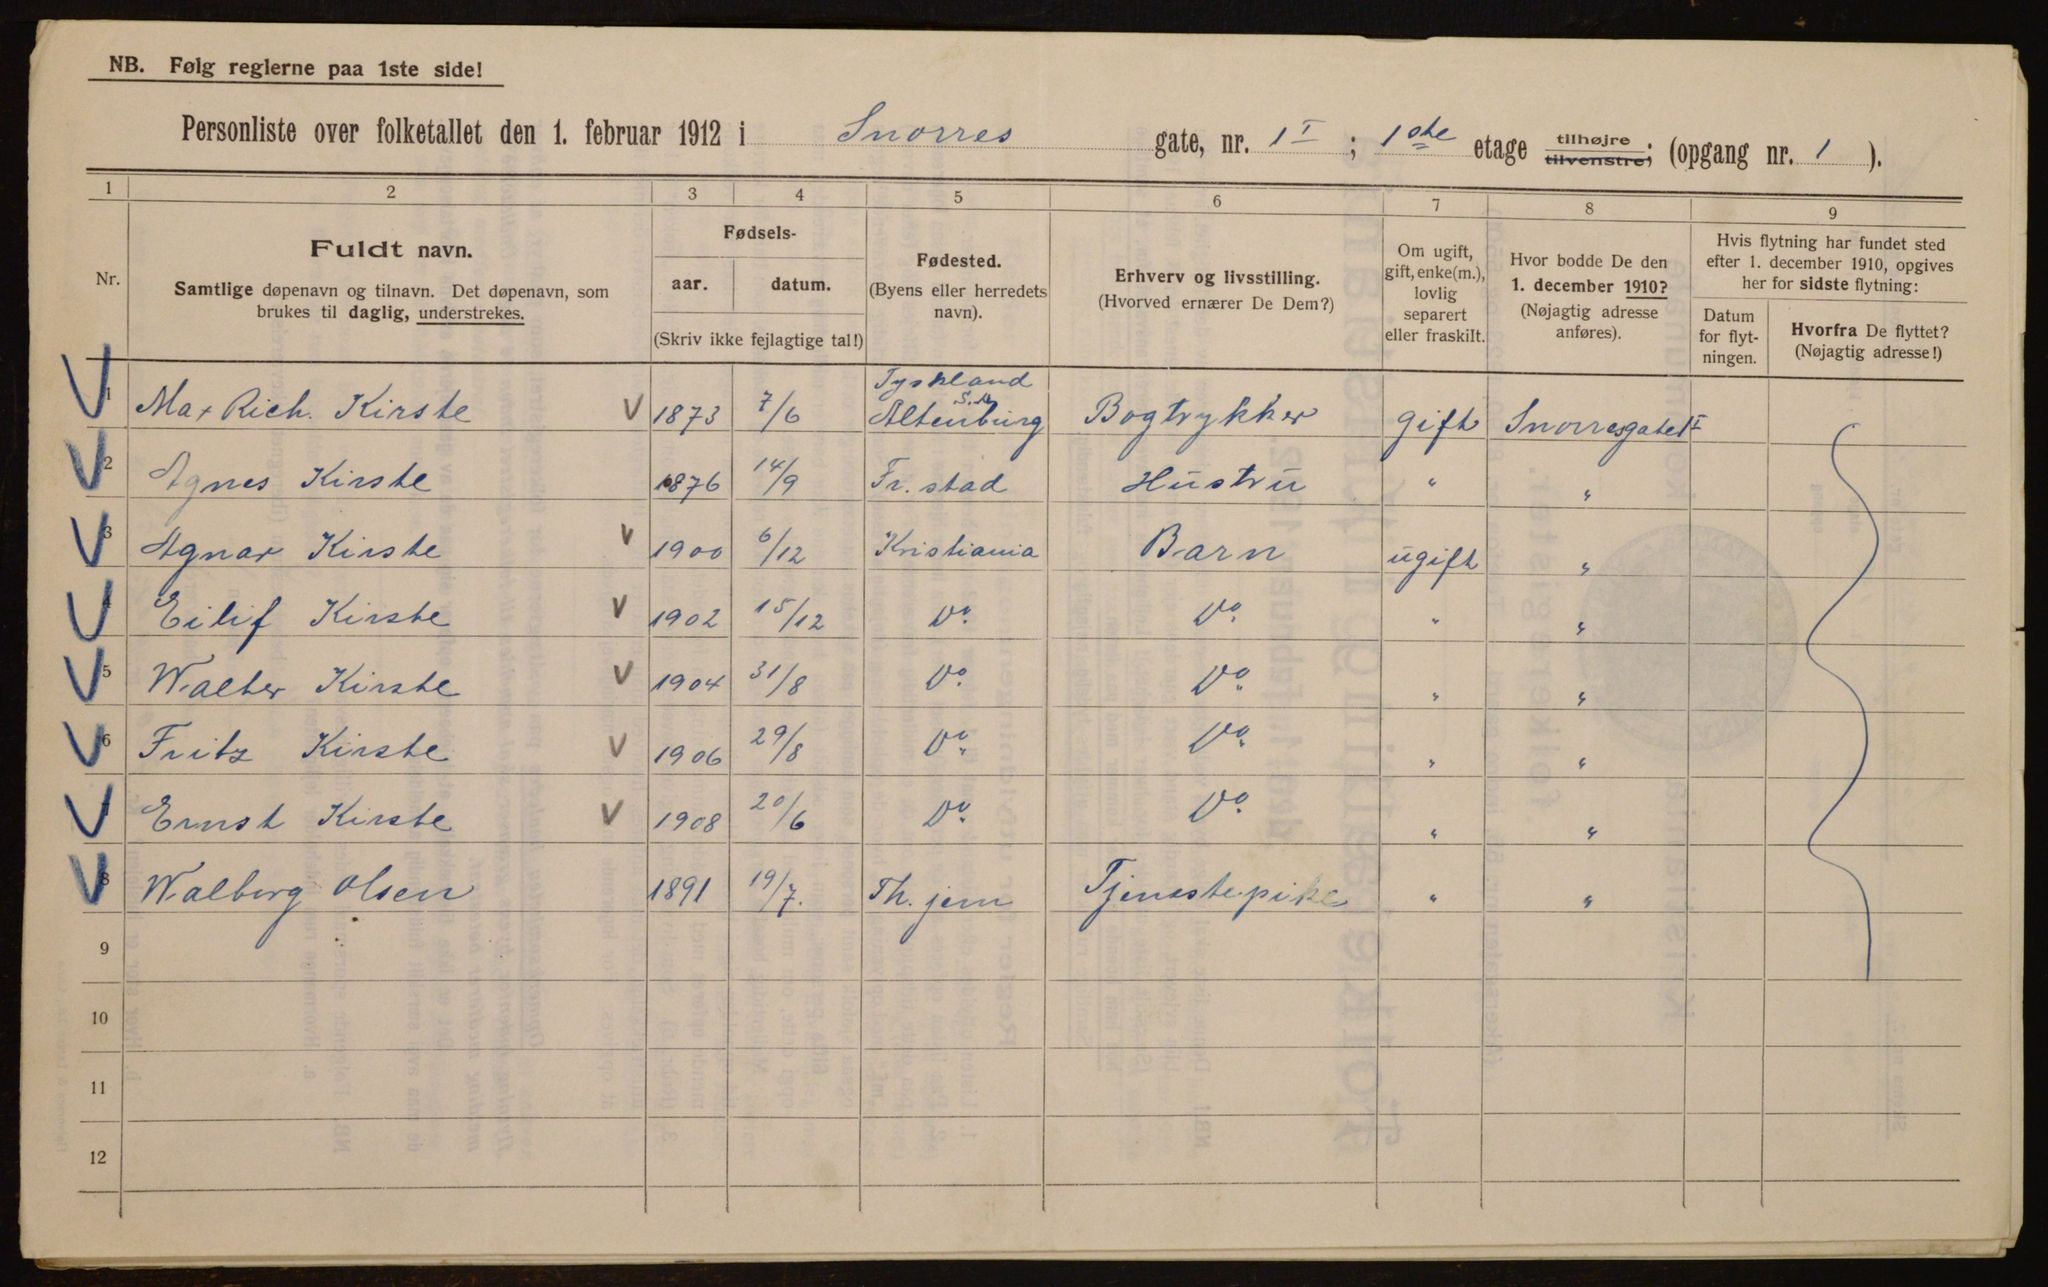 NB. Følg reglerne paa 1ste side!
Personliste over folketallet den 1. februar 1912 i Snorres gate, nr. 1 I ; 1ste etage tilhøjre tilvenstre; (opgang nr. 1 ).
1 2 3 4 5 6 7 8 9
Nr.
Fuldt navn.
Samtlige døpenavn og tilnavn. Det døpenavn, som
brukes til daglig, understrekes.
Fødsels-
aar. datum.
(Skriv ikke fejlagtige tal!)
Fødested.
(Byens eller herredets
navn).
Erhverv og livsstilling.
(Hvorved ernærer De Dem?)
Om ugift,
gift, enke(m.),
lovlig
separert
eller fraskilt.
Hvor bodde De den
1. december 1910?
(Nøjagtig adresse
anføres).
Hvis flytning har fundet sted
efter 1. december 1910, opgives
her for sidste flytning:
Datum
for flyt-
ningen.
Hvorfra De flyttet?
(Nøjagtig adresse!)
Tyskland
1 Max Rich. Kirste V 1873 7/6 Altenburg S.A. Bogtrykker gift Snorresgate 1 I
2 Agnes Kirste 1876 14/9 Fr. stad Hustru " "
3 Agnar Kirste V 1900 6/12 Kristiania Barn ugift "
4 Eilif Kirste V 1902 15/12 Do. Do. " "
5 Walter Kirste V 1904 31/8 Do. Do. " "
6 Fritz Kirste V 1906 29/8 Do. Do. " "
7 Ernst Kirste V 1908 20/6 Do. Do. " "
8 Walborg Olsen 1891 19/7. Th. jem Tjenestepike " "
9
10
11
12